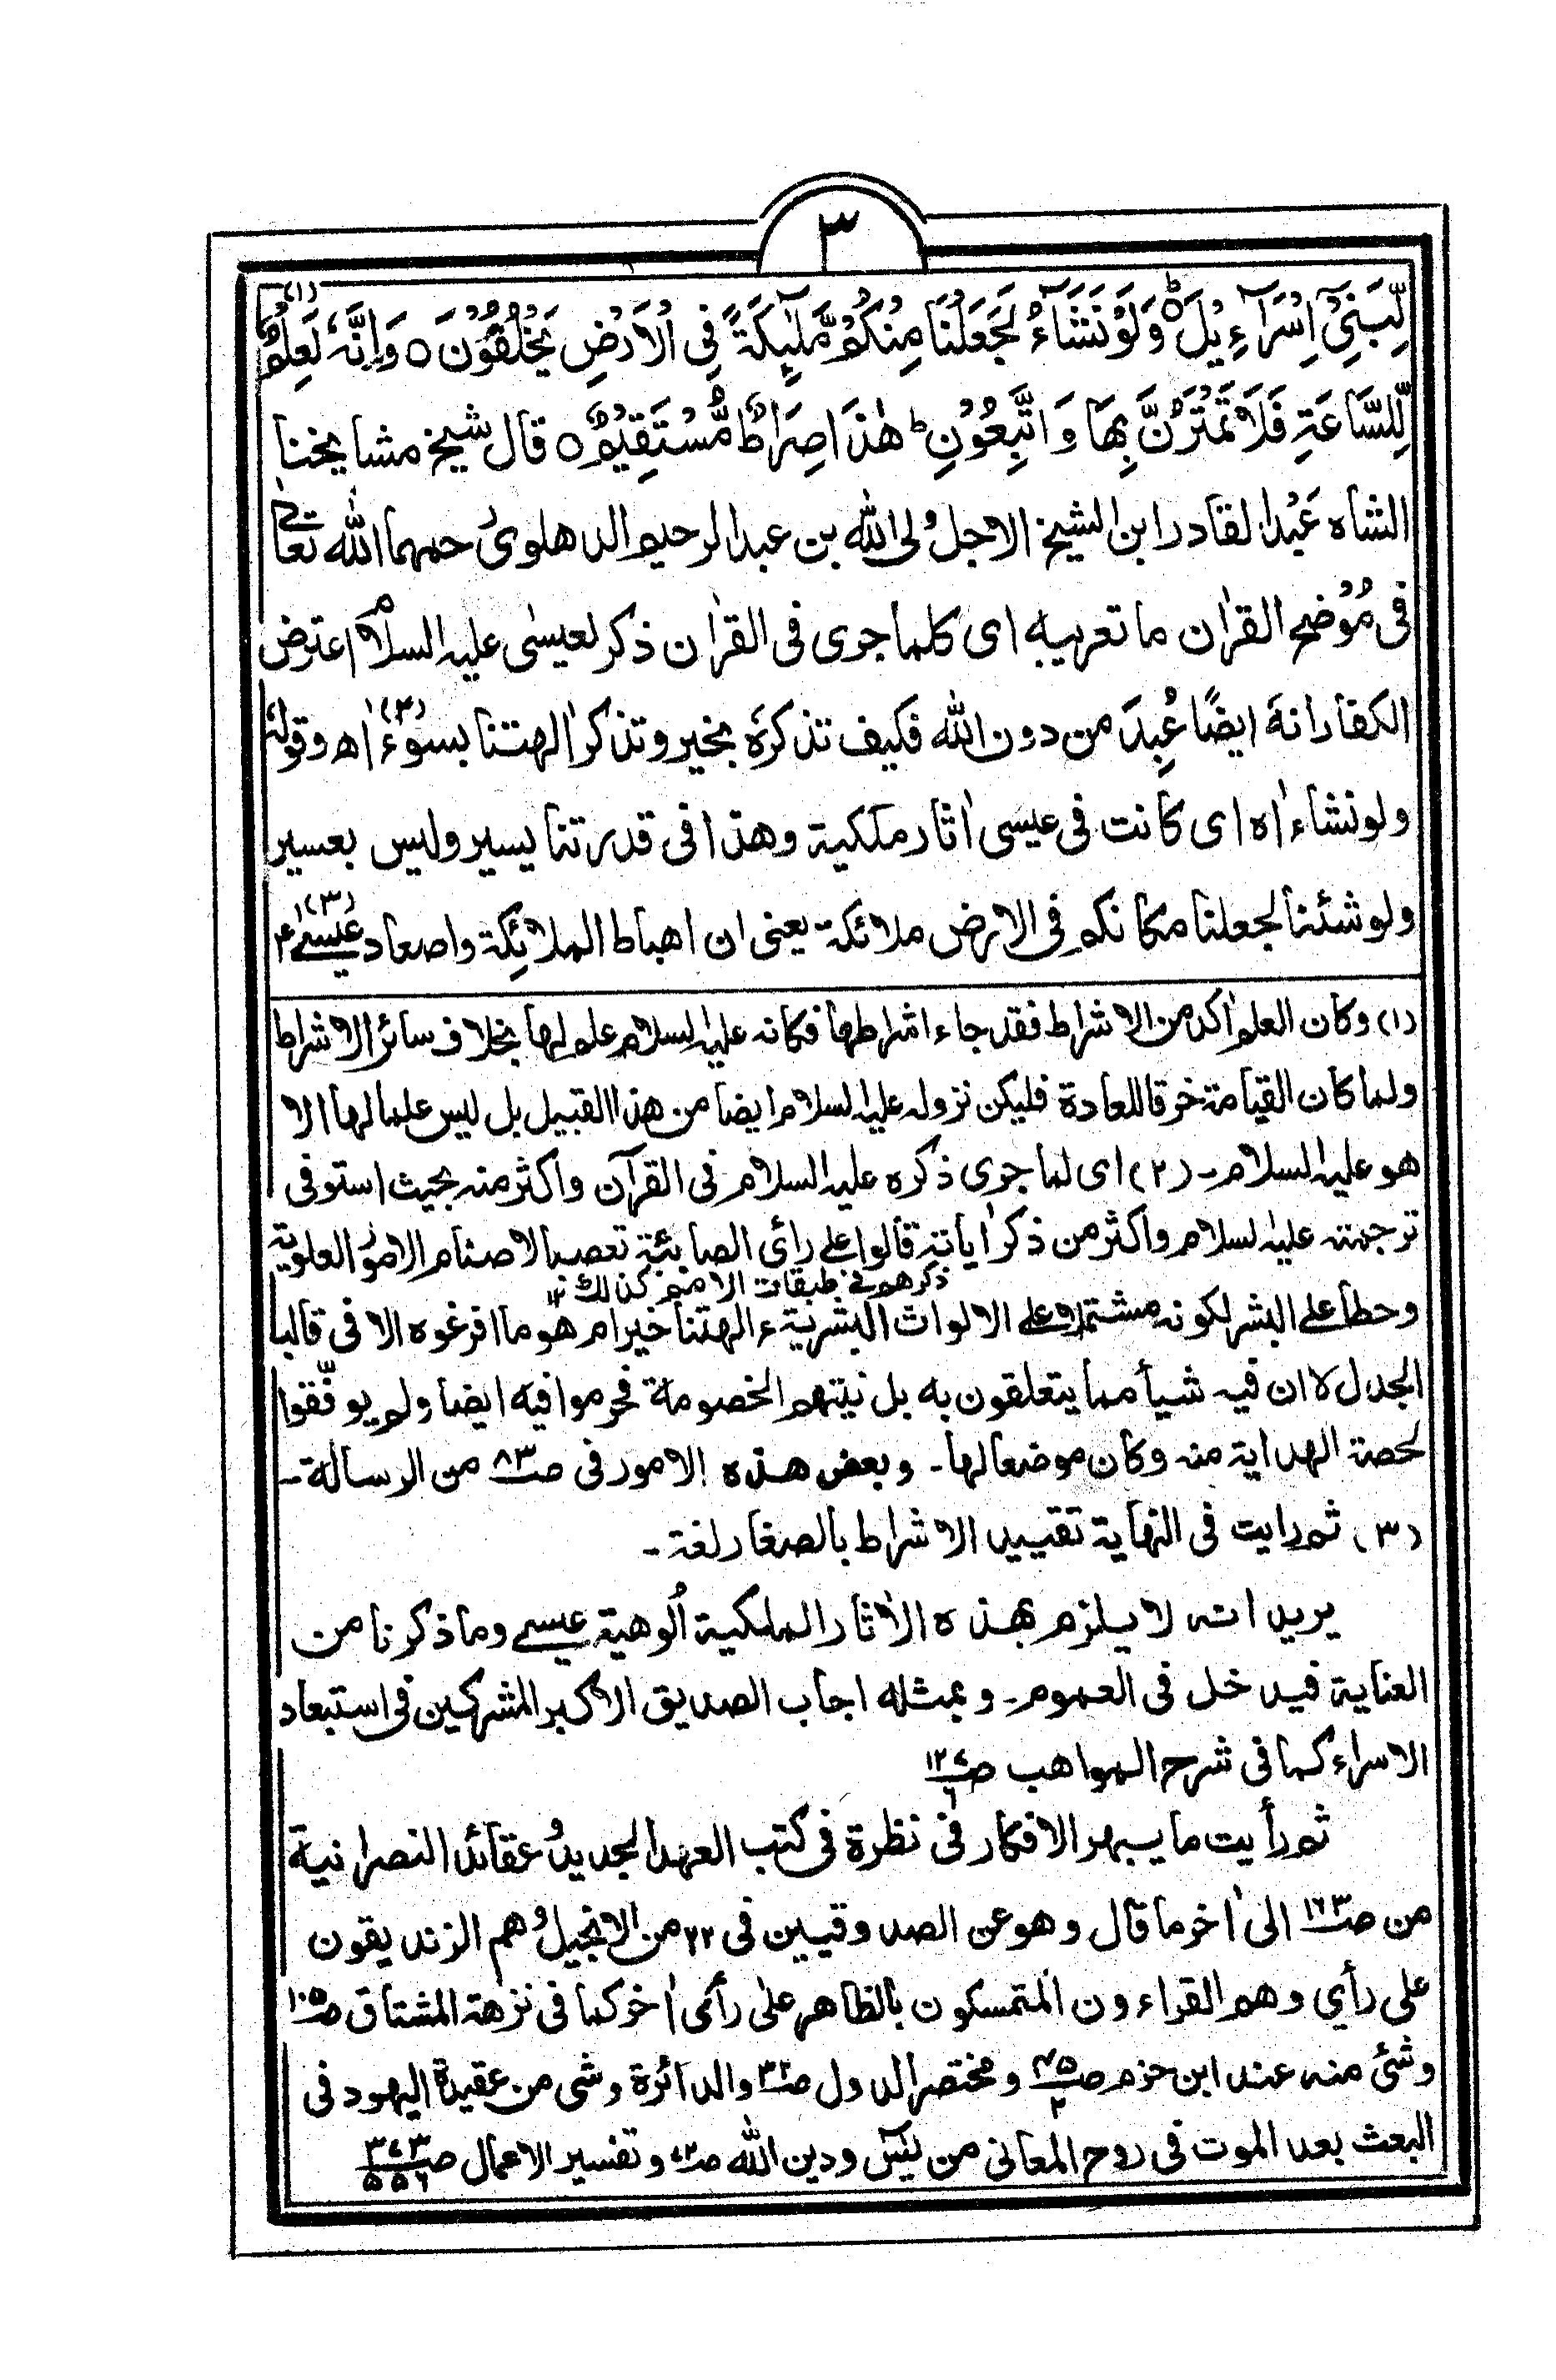 ٣
لِّبَنِيْٓ اِسْرَآءِيْلَ ؕ وَلَوْ نَشَآءُ لَجَعَلْنَا مِنْكُمْ مَّلٰٓئِكَةً فِى الْاَرْضِ يَخْلُفُوْنَ ○ وَاِنَّهٗ لَعِلْمٌ (١)
لِّلسَّاعَةِ فَلَا تَمْتَرُنَّ بِهَا وَاتَّبِعُوْنِ ؕ هٰذَا صِرَاطٌ مُّسْتَقِيْمٌ ○ قال شيخ مشايخنا
الشاه عبد القادر ابن الشيخ الاجل ولى الله بن عبد الرحيم الدهلوى رحمهما الله تعالٰى
فى مُوْضح القراٰن ما تعريبه اى كلما جرى فى القراٰن ذكر لعيسٰى عليه السلام اعترض
الكفار انهٗ ايضًا عُبِدَ من دون الله فكيف تذكرهٗ بخير وتذكر اٰلهتنا بسوْء (٢) اه وقولهٗ
ولو نشاء اٰه اى كانت فى عيسى اٰثار ملكية وهذا فى قدرتنا يسير وليس بعسير
ولو شئنا لجعلنا مكانكم فى الارض ملائكة يعنى ان اهباط الملائِكة واصعاد عيسى (٣)
(١) وكان العلم اٰكد من الاشراط فقد جاء اشراطها فكانه عليه السلام علم لها بخلاف سائر الاشراط
ولما كان القيامة خرقا للعادة فليكن نزوله عليه السلام ايضا من هذا القبيل بل ليس علما لها الا
هو عليه السلام۔ (٢) اى لما جرى ذكره عليه السلام فى القرآن واكثر منه بحيث استوفى
ترجمته عليه السلام واكثر من ذكر اٰياته قالوا على رأى الصابئة تعصبا لاصنام الامور العلوية
ذكر هم فى طبقات الامم كذلك ١٢
وحطا على البشر لكونه مشتملا على الالواث البشرية ءالهتنا خير ام هو ما افرغوه الا فى قالب
الجدل لا ان فيه شيأ مما يتعلقون به بل نيتهم الخصومة فحرموا فيه ايضا ولم يوفّقوا
لحصة الهداية منه وكان موضعا لها۔ وبعض هذه الامور فى صـ٨٣ من الرسالة۔
(٣) ثم رايت فى النهاية تقييد الاشراط بالصغار لغة۔
يريد انه لا يلزم بهذه الاٰثار الملكية اُلوهية عيسى وما ذكرنا من
العناية فيدخل فى العموم۔ وبمثله اجاب الصديق الاكبر المشركين فى استبعاد
الاسراء كما فى شرح المواهب صـ
ثم رأيت ما يبهر الافكار فى نظرة فى كتب العهد الجديد وعقائد النصرانية
من صـ١٢٣ الى اٰخر ما قال وهو عن الصدوقيين فى ٢٢ من الانجيل وهم الزنديقون
على رأي وهم القراءون المتمسكون بالظاهر على رأى اٰخر كما فى نزهة المشتاق صـ١٠٥
وشئ منه عند ابن حزم صـ ومختصر الدول صـ والدائرة وشى من عقيدة اليهود فى
البعث بعد الموت فى روح المعانى من يٰسٓ ودين الله صـ وتفسير الاعمال صـ